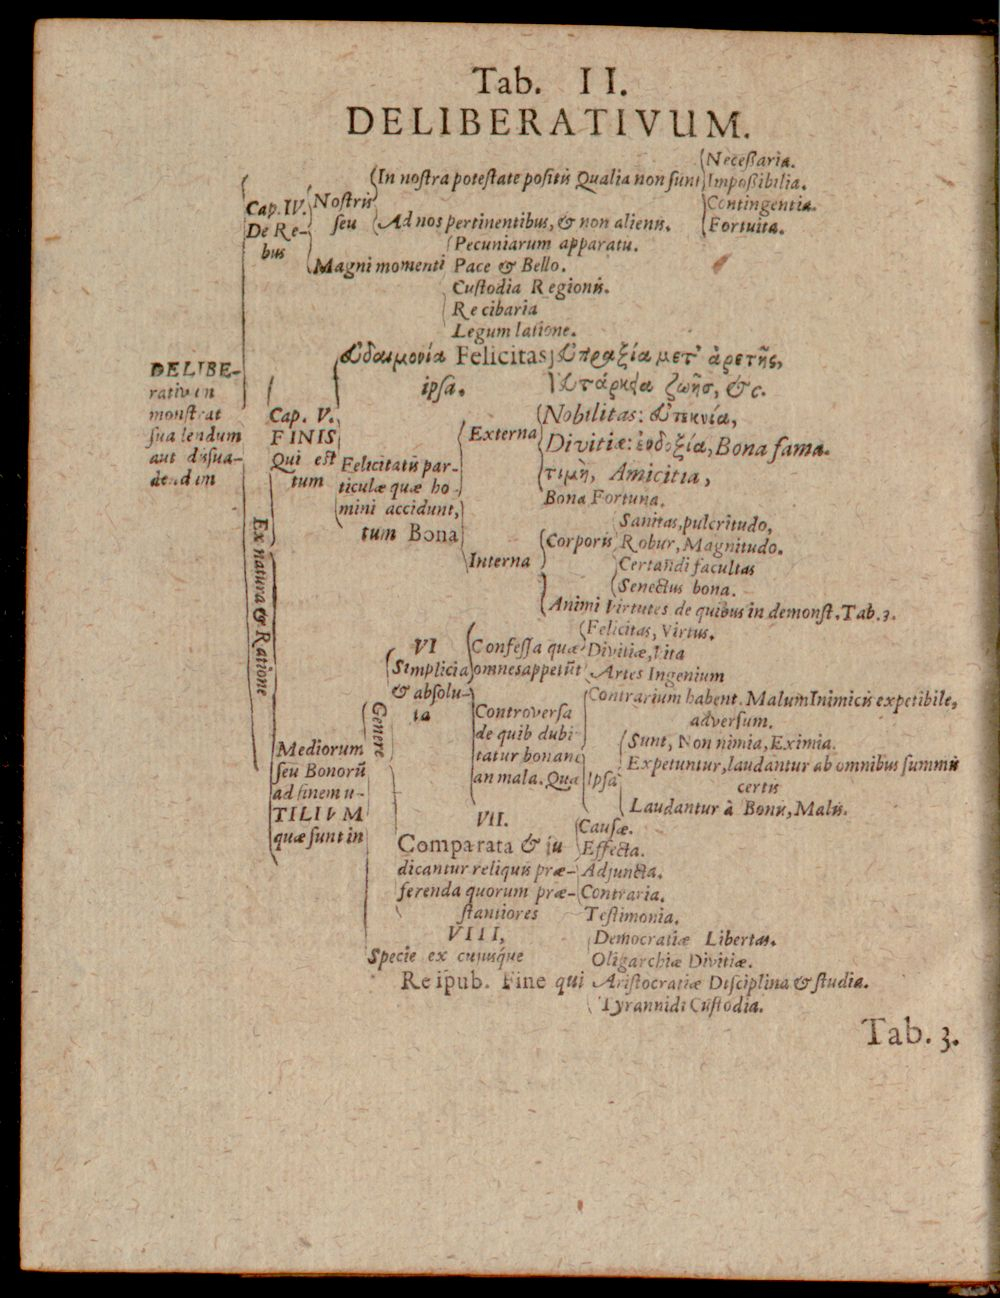 Tab. II.
DELIBERATIVUM.
Neceſſaria.
In noſtra poteſtate poſitis Qualia non ſunt Impoſſibilia.
Cap. IV. Noſtris
Contingentia.
De Re-
ſeu Ad nos pertinentibus, & non alienis. Fortuita.
bus
Pecuniarum apparatu.
Magni momenti Pace & Bello.
Cuſtodia Regionis.
Re cibaria
Legum latione.
Felicitas μετ' ἀρετῆς,
ipſa. ζωῆσ, &c.
DELIBE-
rativum
monſtrat
ſuadendum
aut diſſua-
dendum
Cap. V.
FINIS
Qui eſt
tum
Nobilitas:
Externa Divitiæ: ἐνδοξία, Bona fama.
Felicitatis par-
τιμὴ, Amicitia,
ticulæ quæ ho-
Bona Fortuna.
mini accidunt,
Sanitas, pulcritudo,
tum Bona
Corporis Robur, Magnitudo.
Interna
Certandi facultas
Senectus bona.
Animi Virtutes de quibus in demonſt. Tab. 3.
Ex natura & Ratione
Felicitas, Virtus.
VI Confeſſa quæ Divitiæ, Vita
Simplicia omnes appetūt Artes Ingenium
& abſolu-
ta
Contrarium habent. Malum Inimicis expetibile,
adverſum.
Genere
Controverſa
de quib dubi
tatur bona nc
an mala. Quæ Ipſa
Sunt, Non nimia, Eximia.
Expetuntur, laudantur ab omnibus ſummis
certis
Laudantur à Bonis, Malis.
Mediorum
ſeu Bonorū
ad finem u-
TILIUM
quæ ſunt in
VII.
Cauſæ.
Comparata & ju Effecta.
dicantur reliquis præ- Adjuncta.
ferenda quorum præ- Contraria.
ſtantiores Teſtimonia.
VIII,
Democratiæ Libertas.
Specie ex cujuſque
Oligarchiæ Divitiæ.
Reipub. Fine qui Ariſtocratiæ Diſciplina & ſtudia.
Tyrannidi Cuſtodia.
Tab. 3.